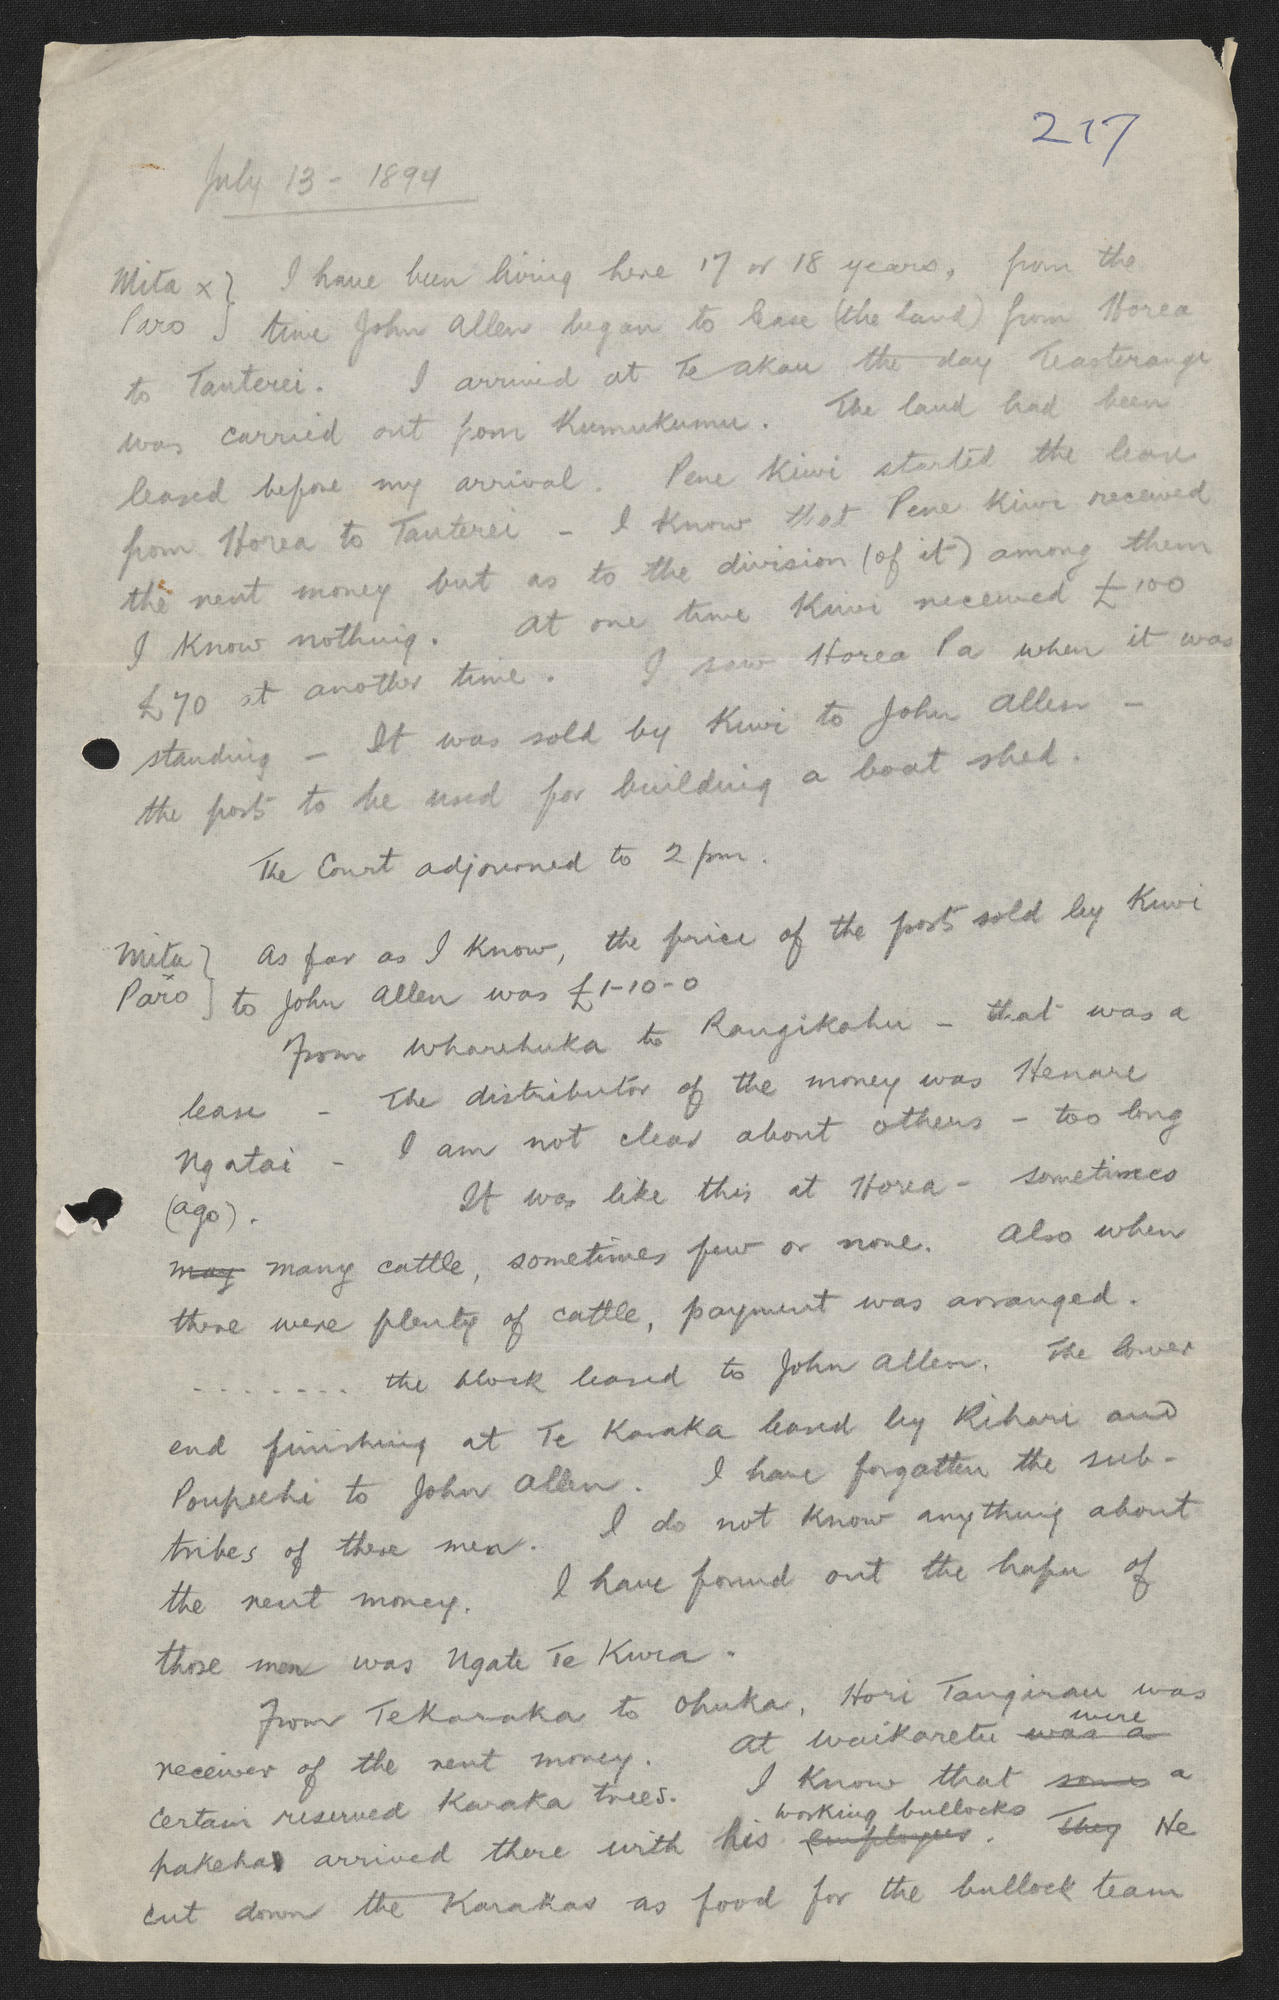 217
July 13 - 1894
Mita x } I have been living here 17 or 18 years, from the
Paro } time John Allen began to lease (the land) from Horea
to Tauterei. I arrived at Te Akau the day
was carried out from Kumukumu. The land had been
leased before my arrival. Pene Kiwi started the lease
from Horea to Tauterei - I know that Pene Kiwi received
the rent money but as to the division (of it) among them
I know nothing. At one time Kiwi received £100
£70 at another time. I saw Horea Pa when it was
standing - It was sold by Kiwi to John Allen -
the posts to be used for building a boat shed.
The Court adjourned to 2 pm.
Mita } As far as I know, the price of the posts sold by Kiwi
x
Paro } to John Allen was £1-10-0
From Wharehuka to Rangikahu - that was a
lease - The distributor of the money was Henare
Ngatai - I am not clear about others - too long
(ago). It was like this at Horea - sometimes
may many cattle, sometimes few or none. Also when
there were plenty of cattle, payment was arranged.
........ the block leased to John Allen. The lower
end finishing at Te Karaka leased by Rihari and
Poupeehi to John Allen. I have forgotten the sub-
tribes of these men. I do not know anything about
the rent money. I have found out the hapu of
those men was Ngate Te Kura.
From TeKaraka to Ohuka, Hori Tangirau was
were
receiver of the rent money. At Waikaretu was a
certain reserved Karaka trees. I know that some a
working bullocks
pakeha arrived there with his employees. They He
cut down the Karakas as food for the bullock team